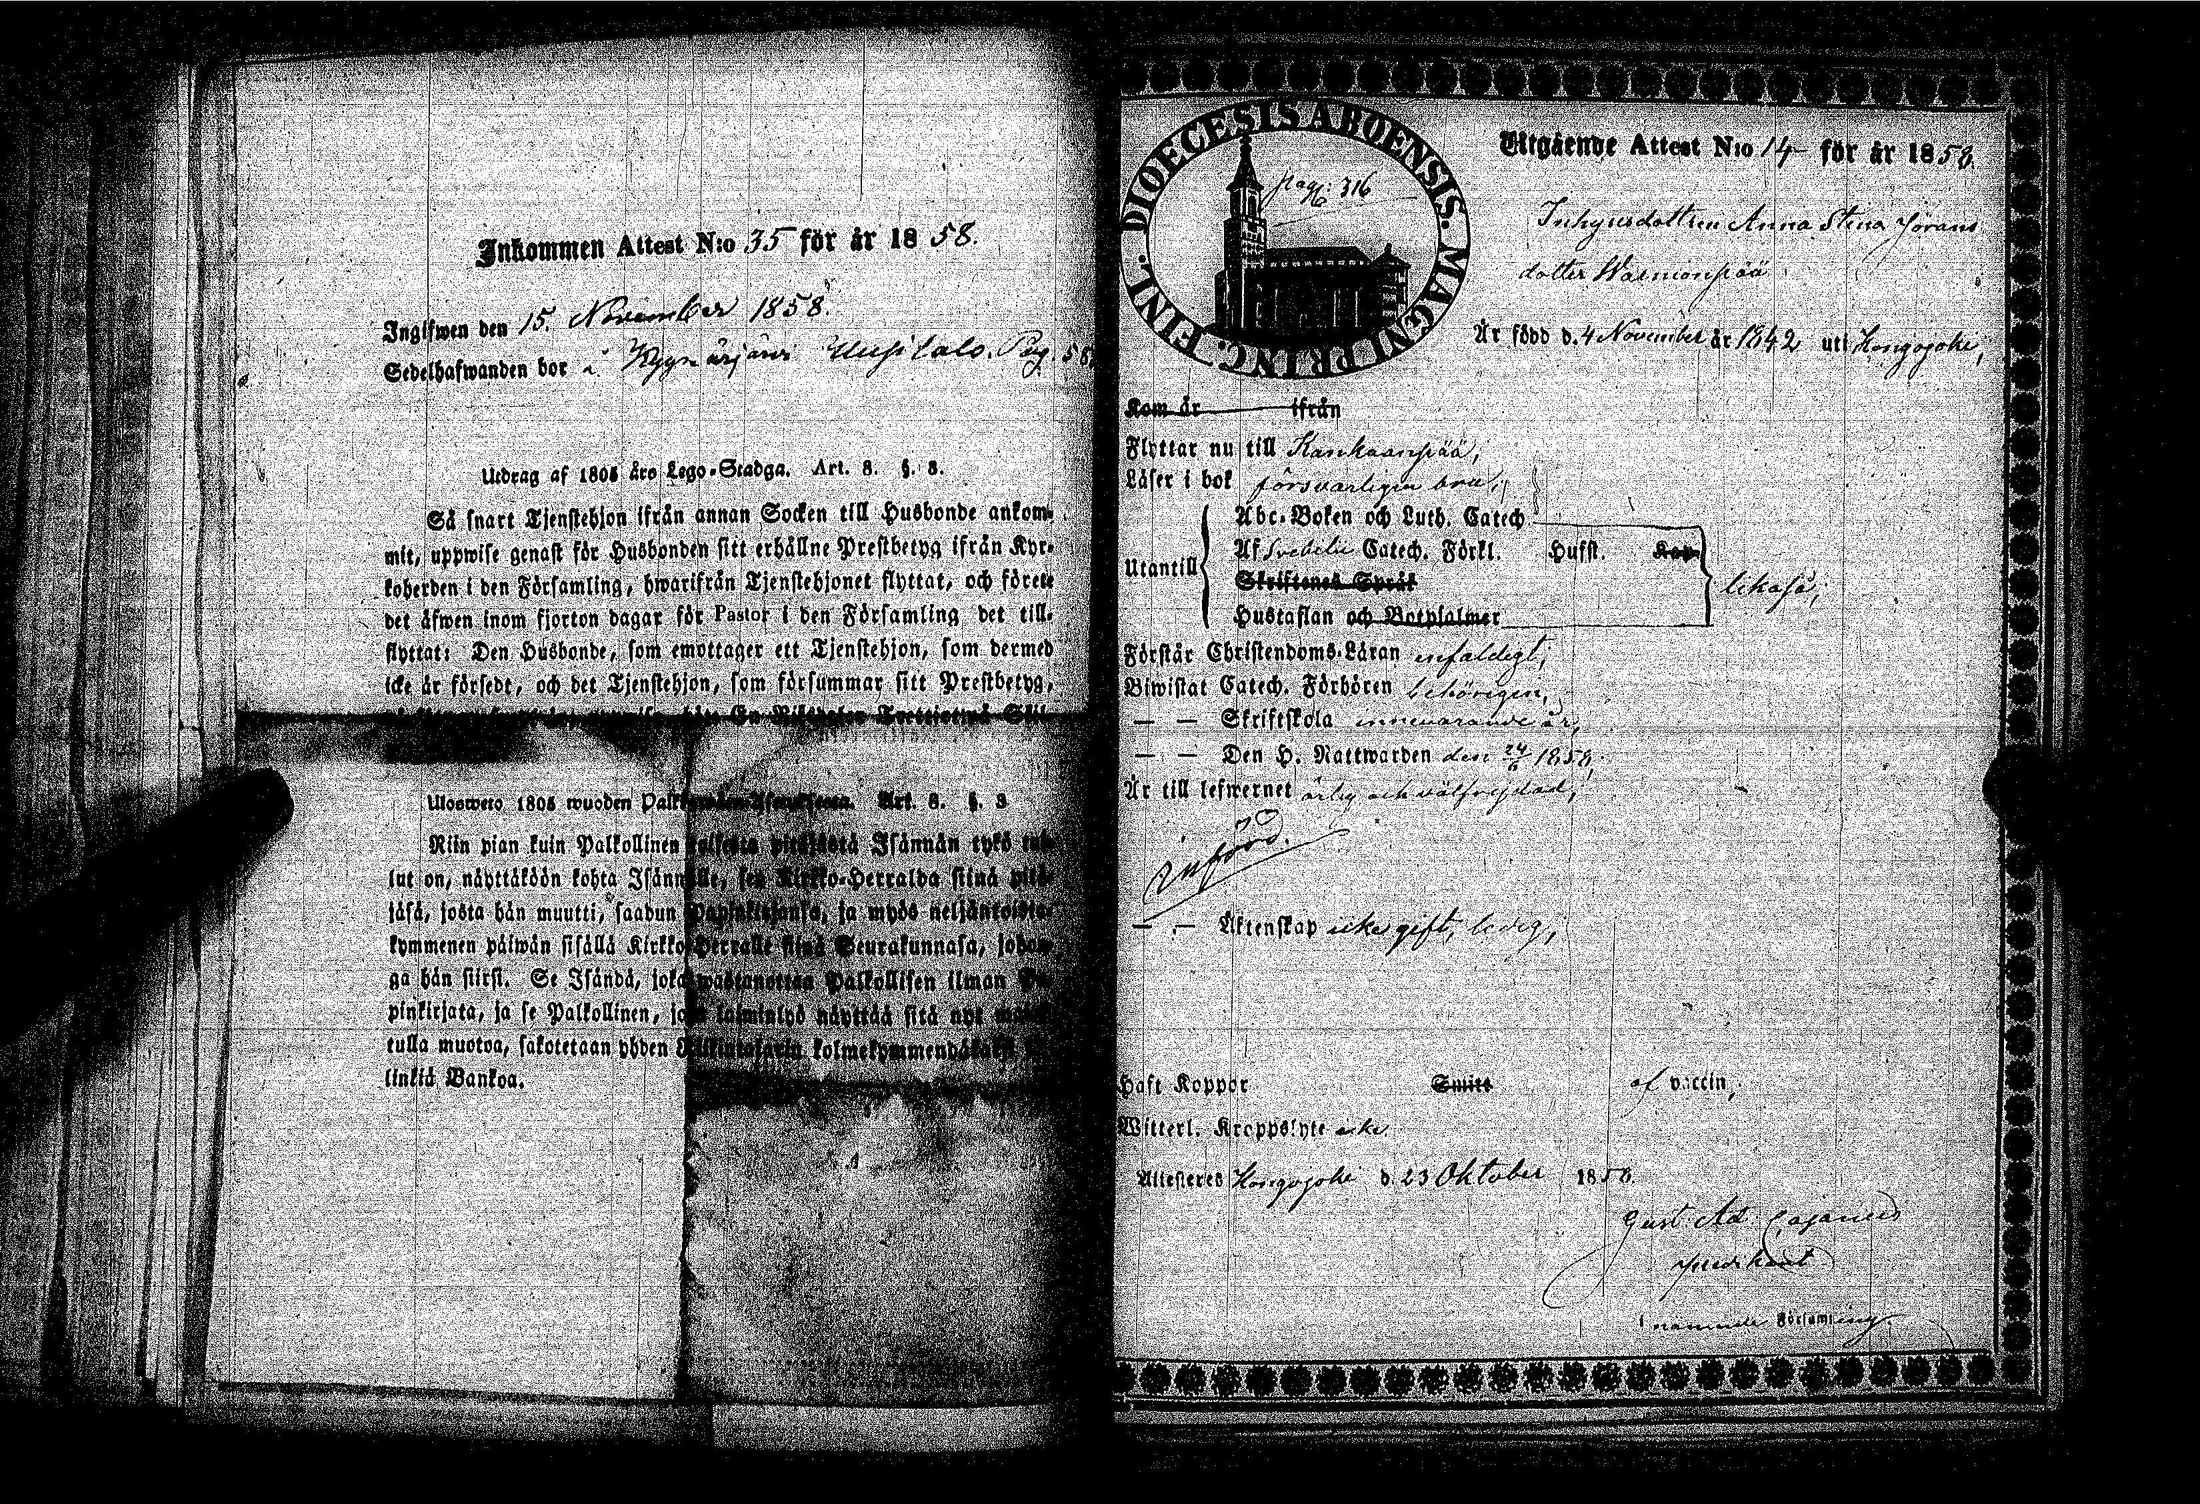 Inkommen Attest N:o 35 för år 1858.
Ingifwen den 15. November 1858.
Sedelhafwanden bor i Kyynärjärvi Uusitalo. Pag. 58.
Utdrag af 1805 års Lego-Stadga. Art. 8. §. 3.
Så snart Tjenstehjon ifrån annan Socken till Husbonde ankom-
mit, uppwise genast för Husbonden sitt erhållne Prestbetyg ifrån Kyr-
koherden i den Församling, hwarifrån Tjenstehjonet flyttat, och förete
det äfwen inom fjorton dagar för Pastor i den Församling det till-
flyttat: Den Husbonde, som emottager ett Tjenstehjon, som dermed
icke är försedt, och det Tjenstehjon, som försummar sitt Prestbetyg,
Ulosweto 1805 wuoden Palkollisten Asetuksesta. Art. 8. §. 3
Niin pian kuin Palkollinen toisesta pitäjästä Isännän tykö tul-
lut on, näyttäköön kohta Isännälle, sen Kirkko-Herralda siinä pitä-
jäsä, josta hän muutti, saadun Papinkirjansa, ja myös neljäntoista-
kymmenen päiwän sisällä Kirkko-Herralle siinä Seurakunnasa, johon-
ga hän siirsi. Se Isändä, joka wastanottaa Palkollisen ilman Pa-
pinkirjata, ja se Palkollinen, joka laiminlyö näyttää sitä nyt
tulla muotoa, sakotetaan yhden Riikintalarin kolmekymmendäkaksi
linkiä Bankoa.
DIOECESIS ABOENSIS. MAGNI PRINC. FINL.
pag: 316
Utgående Attest N:o 14 för år 1858.
Inhysesdottren Anna Stina Jörans
dotter Warmonpää
Är född d. 4 November år 1842 uti Hongojoki,
Kom år ifrån
Flyttar nu till Kankaanpää,
Läser i bok försvarligen bra,
Utantill
Abc-Boken och Luth. Catech
Af Svebelii Catech. Förkl. Husst.
Skriftenes Språk
Hustaflan och Botpsalmer
likaså,
Förstår Christendoms-Läran enfaldigt,
Biwistat Catech. Förhören behörigen,
— — Skriftskola innevarande år,
— — Den H. Nattwarden den 24/6 1858,
Är till lefwernet ärlig och välfrejdad,
Införd.
— — Äktenskap icke gift, ledig,
Haft Koppor Smitt af vaccin,
Witterl. Kroppslyte icke.
Attesteres Hongojoki d 23 Oktober 1858.
Gust. Ad. Cajanus
predikant
i nämnde Församling.